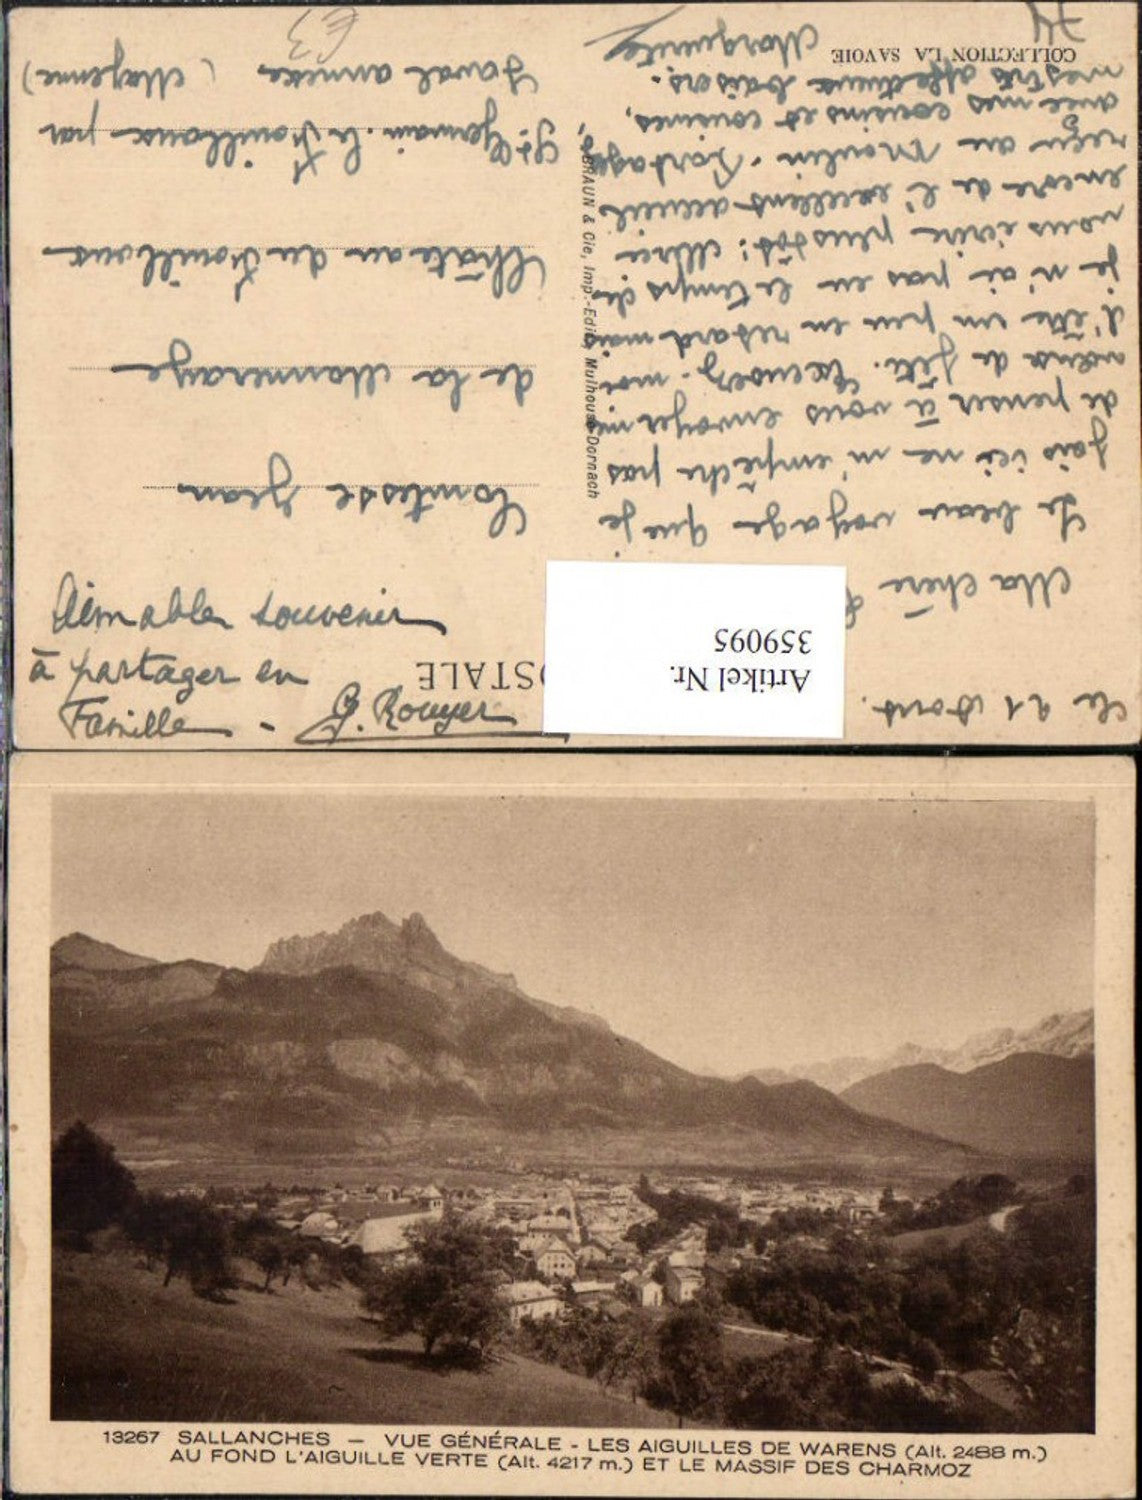 Le 21 Août.
Ma chère
Le beau voyage que je
fais ici ne m'empêche pas
de penser à vous envoyer mes
vœux de fête. Excusez-moi
d'être un peu en retard mais
je n'ai pas eu le temps de
vous écrire plus tôt; Merci
encore de l'excellent accueil
reçu au Moulin. Partagez,
avec mes cousins et cousines,
mes très affectueux baisers.
Marguerite
COLLECTION LA SAVOIE
OSTALE
BRAUN & Cie, Imp.-Edit., Mulhouse-Dornach
Comtesse Jean
de la Monneraye
Château du Fouilloux
St Germain-le-Fouilloux par
Laval annexe (Mayenne)
Aimable souvenir
à partager en
Famille - G. Rouyer
Artikel Nr.
359095
€3
74
13267 SALLANCHES — VUE GÉNÉRALE - LES AIGUILLES DE WARENS (Alt. 2488 m.)
AU FOND L'AIGUILLE VERTE (Alt. 4217 m.) ET LE MASSIF DES CHARMOZ